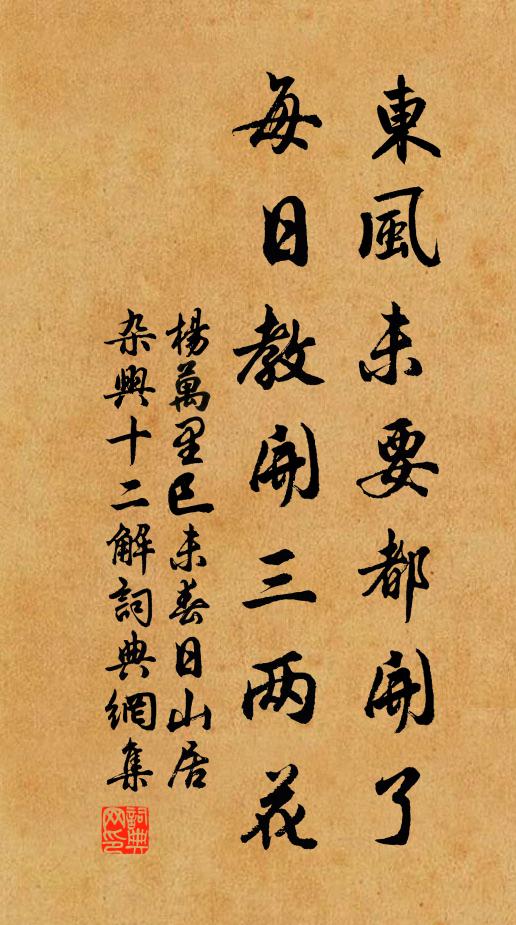 東風未要都開了
每日教開三两花
楊萬里巳未春日山居
杂興十二解詞典網集
詞典网印